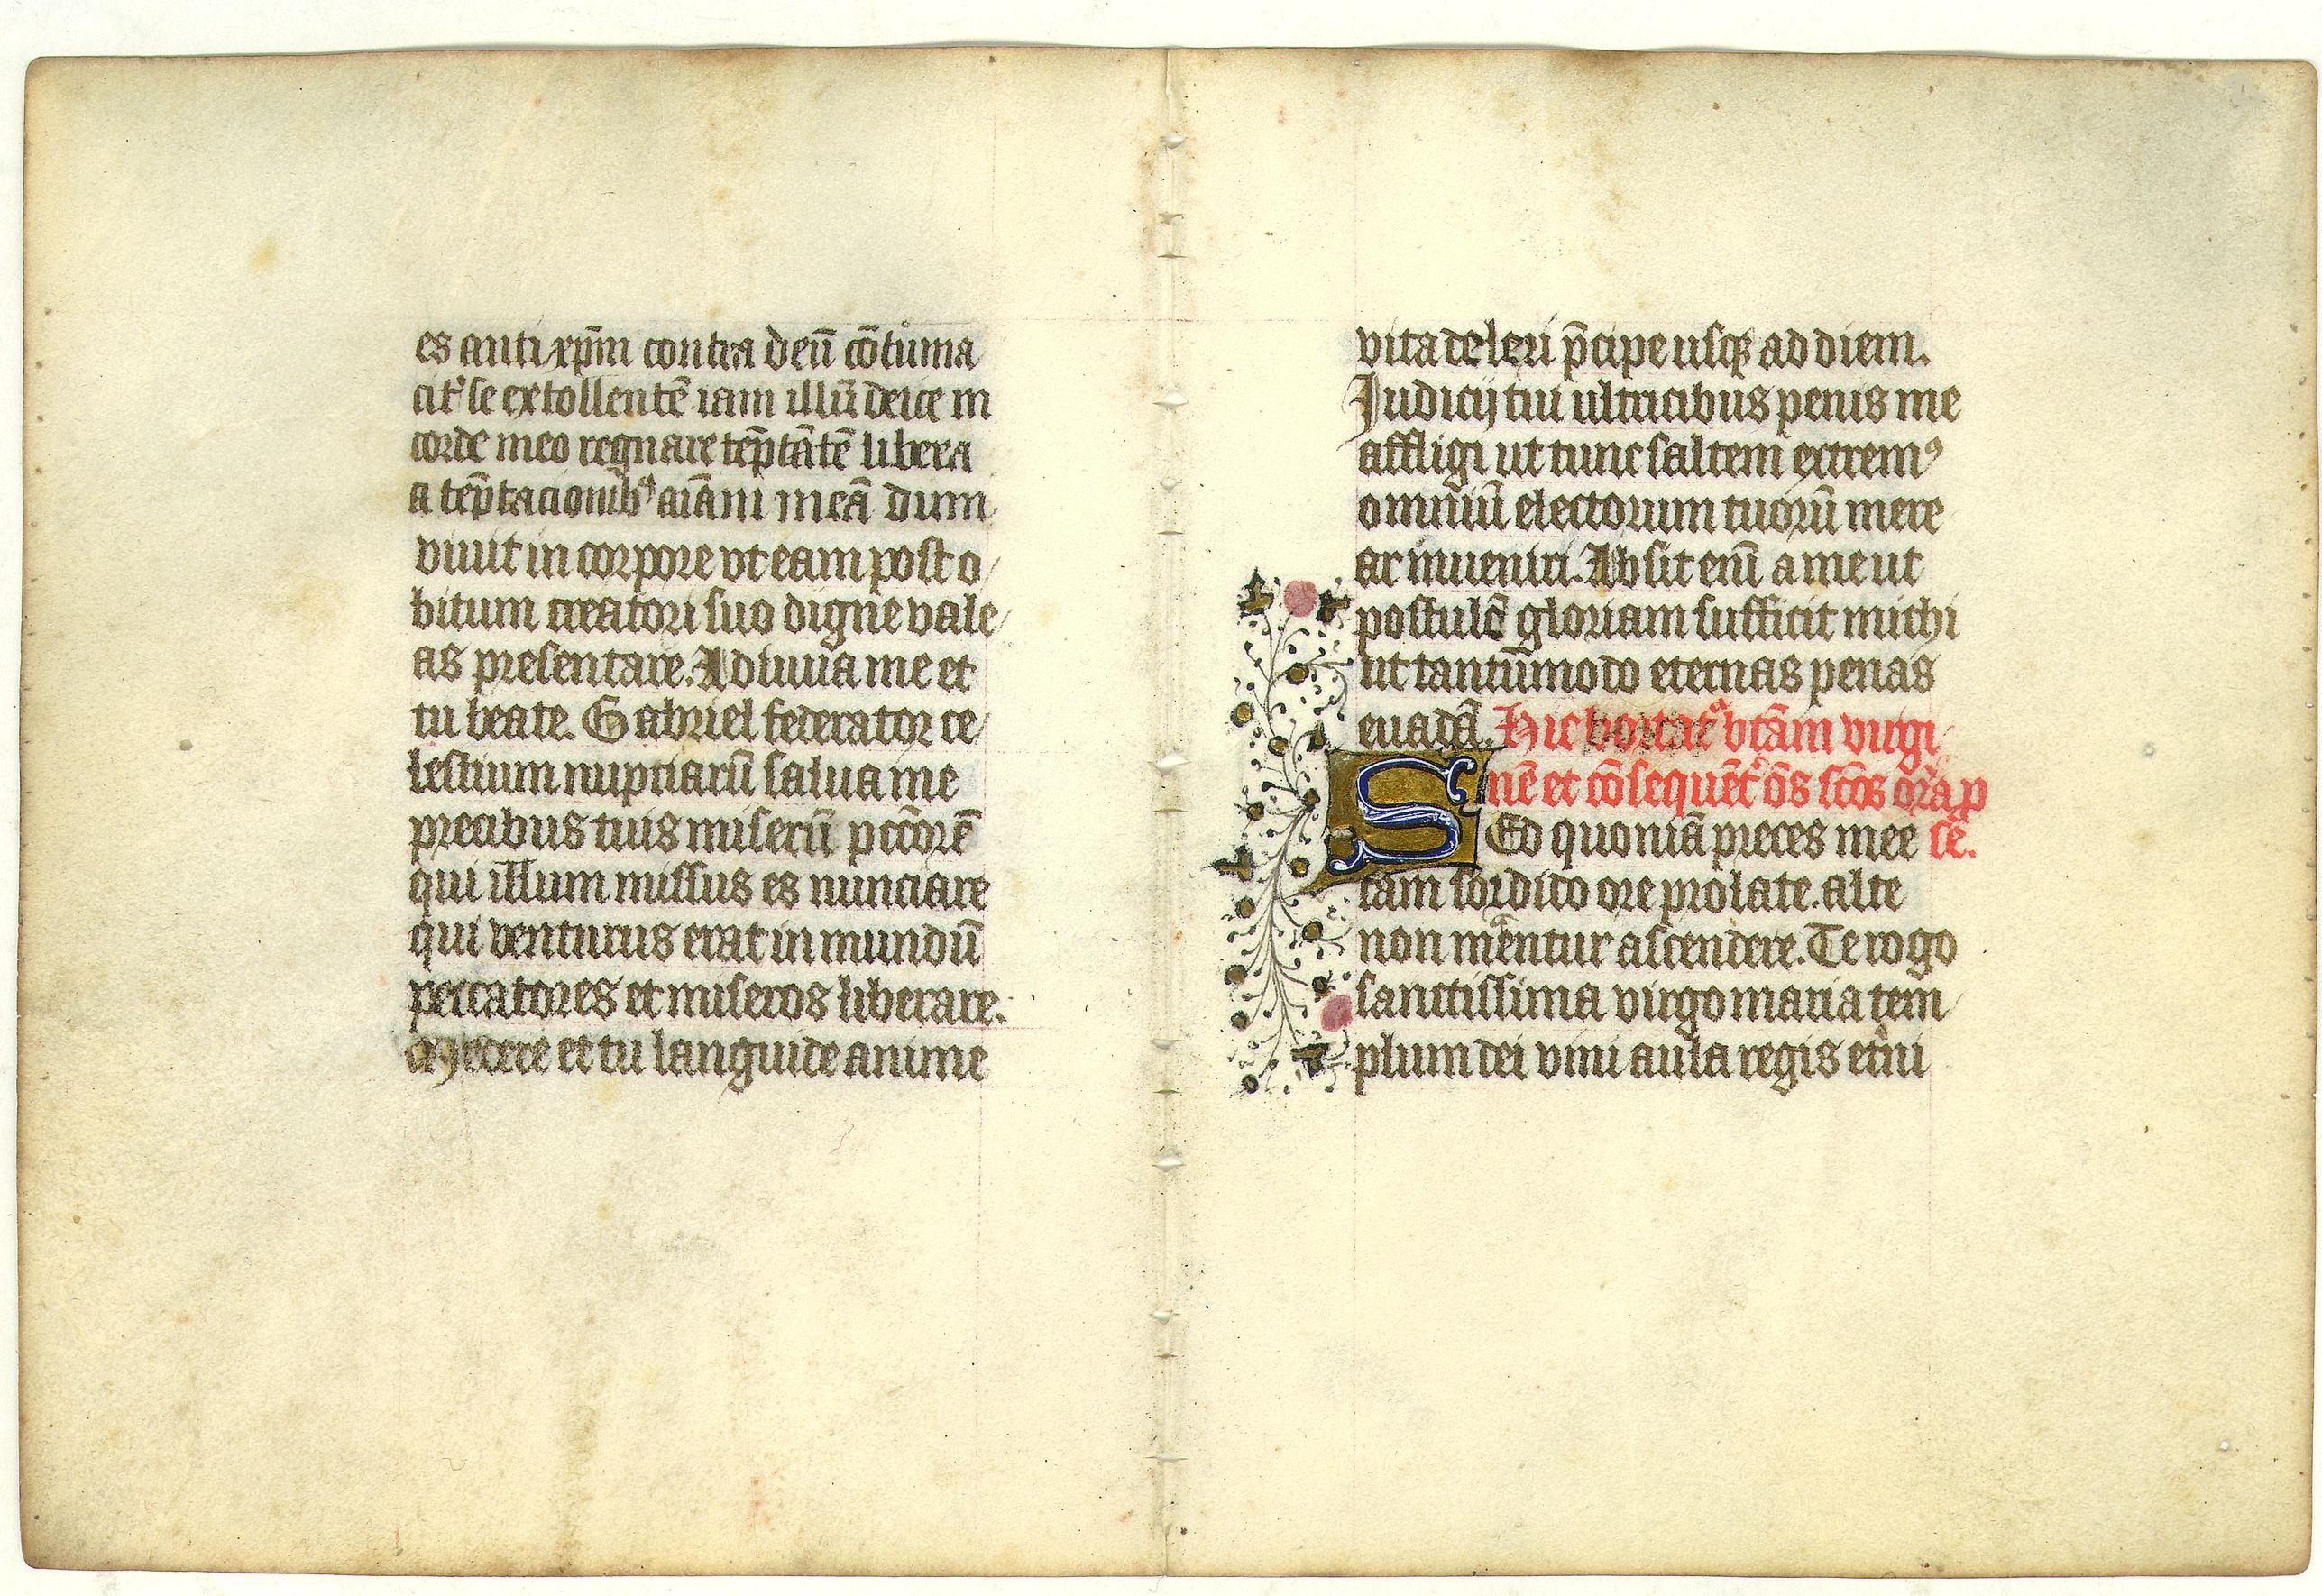 es anti xp̄m contra deū cōtuma
cit᷑ se extollentē iam illū deice in
corde meo regnare tēptātē libera
a tēptacionib⁹ aīam meā dum
viuit in corpore vt eam post o
bitum creatori suo digne vale
as presentare. Adiuua me et
tu beate. Gabriel federator ce
lestium nupciarū salua me
precibus tuis miserū pctōrē
qui illum missus es nunciare
qui venturus erat in mundū
peccatores et miseros liberare.
Medere et tu languide anime
vita deleri p̄cipe usq; ad diem.
Iudicij tui ultricibus penis me
affligi ut tunc saltem extrem⁹
omniū electorum tuorū mere
ar inueniri. Absit enī a me ut
postulē gloriam sufficit michi
ut tantūmodo eternas penas
euadā. Hic hortat᷑ btām virgi
nē et cōsequēt᷑ oēs scōs orā p
Sed quoniā preces mee sē.
tam sordido ore prolate. alte
non merētur ascendere. Te rogo
sanctissima virgo maria tem
plum dei viui aula regis et̄ni